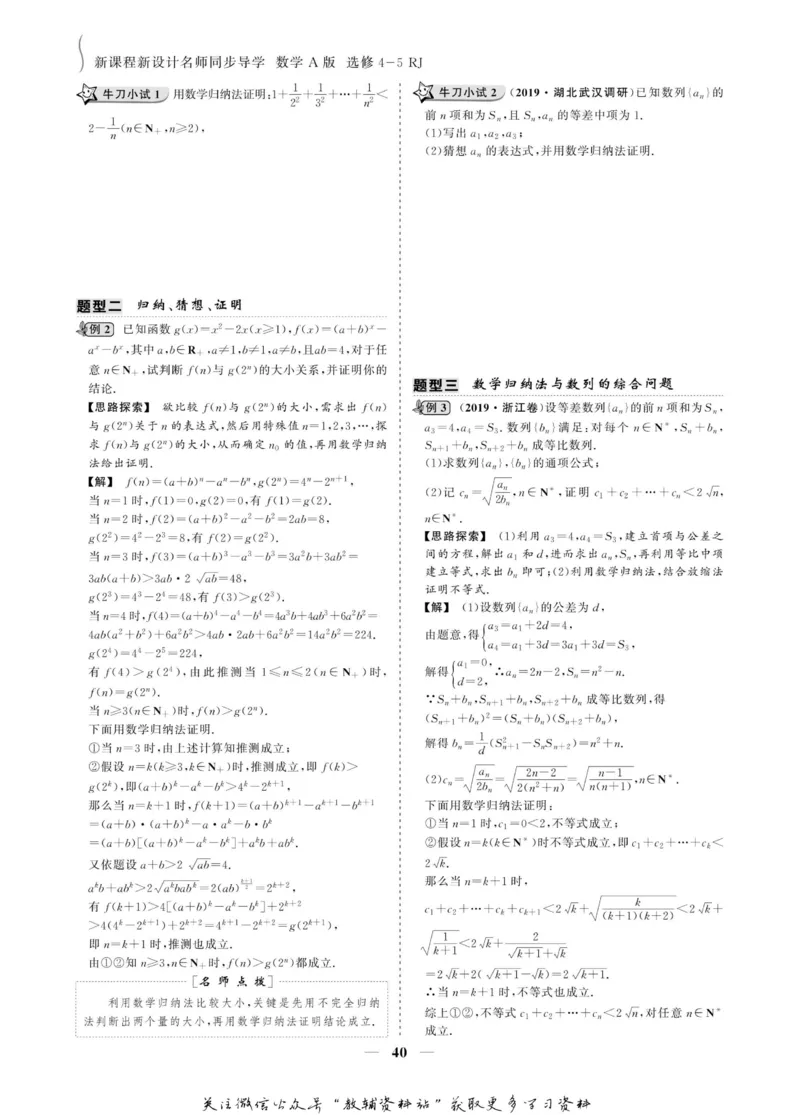 新课程新设计名师同步导学 数学 A 版 选修 4-5 RJ
牛刀小试 1 用数学归纳法证明:1+1/2²+1/3²+…+1/n²<
2-1/n(n∈N₊,n≥2),
题型二 归纳、猜想、证明
例 2 已知函数 g(x)=x²-2x(x≥1),f(x)=(a+b)ˣ-
aˣ-bˣ,其中a,b∈R₊,a≠1,b≠1,a≠b,且ab=4,对于任
意 n∈N₊,试判断 f(n)与 g(2ⁿ)的大小关系,并证明你的
结论.
【思路探索】 欲比较 f(n)与 g(2ⁿ)的大小,需求出 f(n)
与 g(2ⁿ)关于 n 的表达式,然后用特殊值 n=1,2,3,…,探
求 f(n)与 g(2ⁿ)的大小,从而确定 n₀ 的值,再用数学归纳
法给出证明.
【解】 f(n)=(a+b)ⁿ-aⁿ-bⁿ,g(2ⁿ)=4ⁿ-2ⁿ⁺¹,
当 n=1 时,f(1)=0,g(2)=0,有 f(1)=g(2).
当 n=2 时,f(2)=(a+b)²-a²-b²=2ab=8,
g(2²)=4²-2³=8,有 f(2)=g(2²).
当 n=3 时,f(3)=(a+b)³-a³-b³=3a²b+3ab²=
3ab(a+b)>3ab·2 √ab=48,
g(2³)=4³-2⁴=48,有 f(3)>g(2³).
当 n=4 时,f(4)=(a+b)⁴-a⁴-b⁴=4a³b+4ab³+6a²b²=
4ab(a²+b²)+6a²b²>4ab·2ab+6a²b²=14a²b²=224.
g(2⁴)=4⁴-2⁵=224,
有 f(4)>g(2⁴),由此推测当 1≤n≤2(n∈N₊)时,
f(n)=g(2ⁿ).
当 n≥3(n∈N₊)时,f(n)>g(2ⁿ).
下面用数学归纳法证明.
①当 n=3 时,由上述计算知推测成立;
②假设 n=k(k≥3,k∈N₊)时,推测成立,即 f(k)>
g(2ᵏ),即(a+b)ᵏ-aᵏ-bᵏ>4ᵏ-2ᵏ⁺¹,
那么当 n=k+1 时,f(k+1)=(a+b)ᵏ⁺¹-aᵏ⁺¹-bᵏ⁺¹
=(a+b)·(a+b)ᵏ-a·aᵏ-b·bᵏ
=(a+b)[(a+b)ᵏ-aᵏ-bᵏ]+aᵏb+abᵏ.
又依题设 a+b>2 √ab=4.
aᵏb+abᵏ>2 √(aᵏbabᵏ)=2(ab)^((k+1)/2)=2ᵏ⁺²,
有 f(k+1)>4[(a+b)ᵏ-aᵏ-bᵏ]+2ᵏ⁺²
>4(4ᵏ-2ᵏ⁺¹)+2ᵏ⁺²=4ᵏ⁺¹-2ᵏ⁺²=g(2ᵏ⁺¹),
即 n=k+1 时,推测也成立.
由①②知 n≥3,n∈N₊时,f(n)>g(2ⁿ)都成立.
[名师点拨]
利用数学归纳法比较大小,关键是先用不完全归纳
法判断出两个量的大小,再用数学归纳法证明结论成立.
牛刀小试 2 (2019·湖北武汉调研)已知数列{aₙ}的
前 n 项和为 Sₙ,且 Sₙ,aₙ 的等差中项为 1.
(1)写出 a₁,a₂,a₃;
(2)猜想 aₙ 的表达式,并用数学归纳法证明.
题型三 数学归纳法与数列的综合问题
例 3 (2019·浙江卷)设等差数列{aₙ}的前 n 项和为 Sₙ,
a₃=4,a₄=S₃.数列{bₙ}满足:对每个 n∈N*,Sₙ+bₙ,
Sₙ₊₁+bₙ,Sₙ₊₂+bₙ 成等比数列.
(1)求数列{aₙ},{bₙ}的通项公式;
(2)记 cₙ=√(aₙ/2bₙ),n∈N*,证明 c₁+c₂+…+cₙ<2 √n,
n∈N*.
【思路探索】 (1)利用 a₃=4,a₄=S₃,建立首项与公差之
间的方程,解出 a₁ 和 d,进而求出 aₙ,Sₙ,再利用等比中项
建立等式,求出 bₙ 即可;(2)利用数学归纳法,结合放缩法
证明不等式.
【解】 (1)设数列{aₙ}的公差为 d,
由题意,得{a₃=a₁+2d=4,
a₄=a₁+3d=3a₁+3d=S₃,
解得{a₁=0,
d=2,
∴aₙ=2n-2,Sₙ=n²-n.
∵Sₙ+bₙ,Sₙ₊₁+bₙ,Sₙ₊₂+bₙ 成等比数列,得
(Sₙ₊₁+bₙ)²=(Sₙ+bₙ)(Sₙ₊₂+bₙ),
解得 bₙ=1/d(S²ₙ₊₁-SₙSₙ₊₂)=n²+n.
(2)cₙ=√(aₙ/2bₙ)=√((2n-2)/(2(n²+n)))=√((n-1)/(n(n+1))),n∈N*.
下面用数学归纳法证明:
①当 n=1 时,c₁=0<2,不等式成立;
②假设 n=k(k∈N*)时不等式成立,即 c₁+c₂+…+cₖ<
2 √k.
那么当 n=k+1 时,
c₁+c₂+…+cₖ+cₖ₊₁<2 √k+√(k/((k+1)(k+2)))<2 √k+
√(1/(k+1))<2 √k+2/(√(k+1)+√k)
=2 √k+2(√(k+1)-√k)=2 √(k+1).
∴当 n=k+1 时,不等式也成立.
综上①②,不等式 c₁+c₂+…+cₙ<2 √n,对任意 n∈N*
成立.
— 40 —
关注微信公众号“教辅资料站”获取更多学习资料